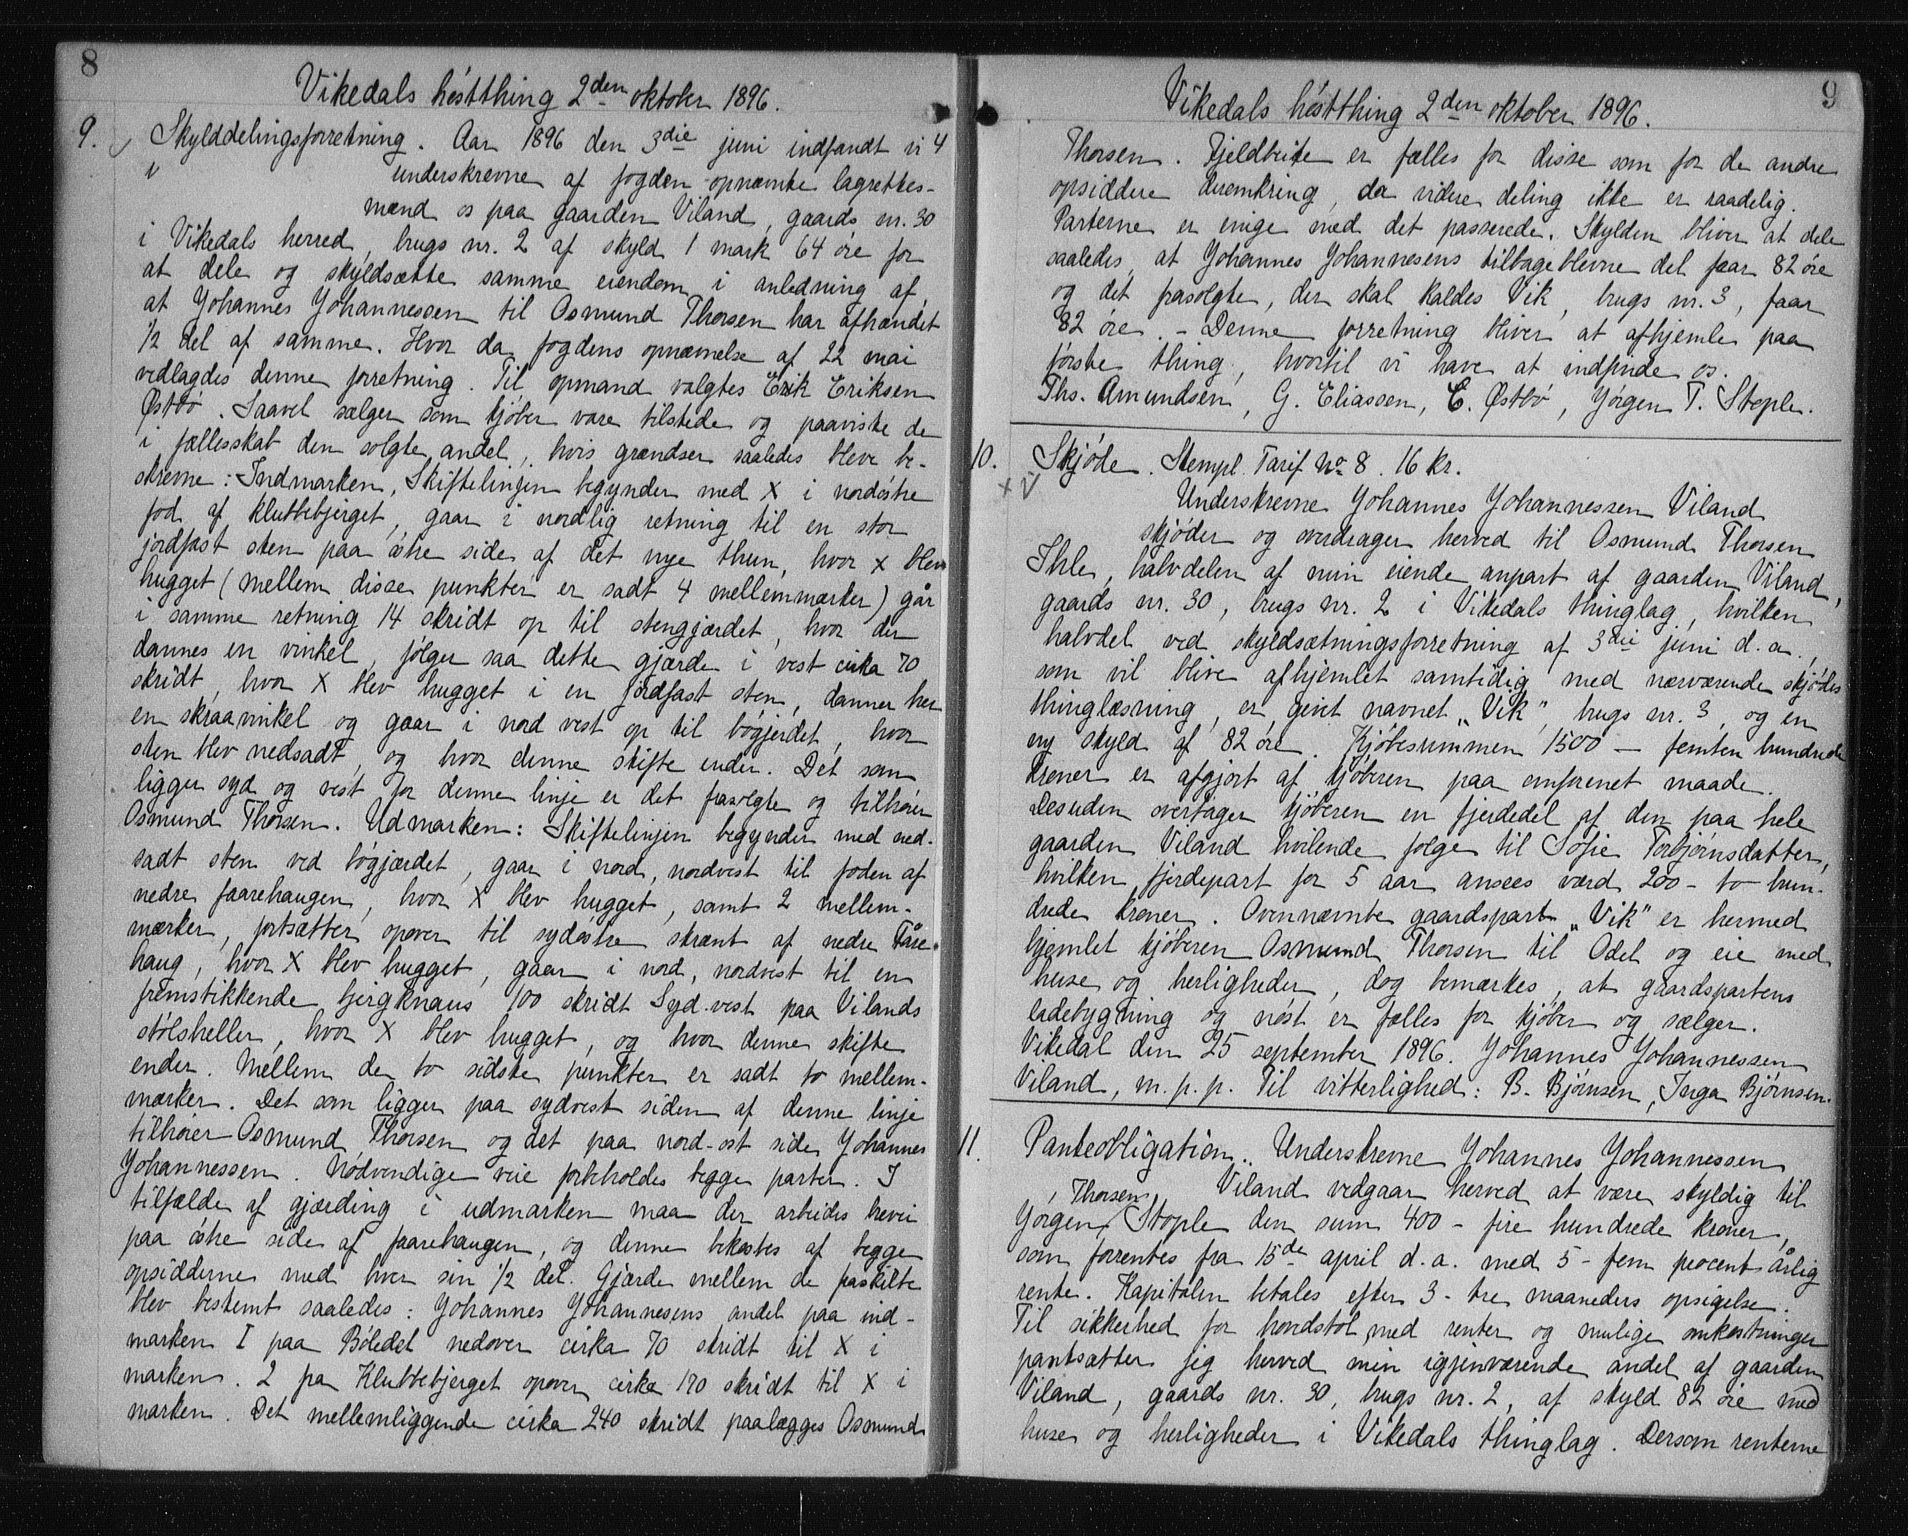 8
Vikedals hósttthing 2den oktober 1896.
9. Skylddelingsforretning. Aar 1896 den 3die juni indfandt vi 4
underskrevne af fogden opnævnte lagrettes-
mænd os paa gaarden Viland, gaards nr. 30
i Vikedals herred, brugs nr. 2 af skyld 1 mark 64 öre for
at dele og skyldsætte samme eiendom i anledning af,
at Johannes Johannessen til Osmund Thorsen har afhændet
1/2 del af samme. Hvor da fogdens opnævnelse af 22 mai
vedlagdes denne forretning. Til opmand valgtes Erik Eriksen
Østbö. Saavel sælger som kjøber vare tilstede og paaviste de
i fællesskab den solgte andel, hvis grændser saaledes bleve be-
skrevne: Indmarken, Skiftelinjen begynder med X i nordöstre
fod af klubbebjerget, gaar i nordlig retning til en stor
jordfast sten paa östre side af det nye thun, hvor x blev
hugget (mellem disse punkter er sadt 4 mellemmærker) går
i samme retning 14 skridt op til stengjærdet, hvor der
dannes en vinkel, følger saa dette gjærde i vest cirka 70
skridt, hvor X blev hugget i en jordfast sten, danner her
en skraavinkel og gaar i nord vest op til bögjerdet, hvor
sten blev nedsadt, og hvor denne skifte ender. Det som
ligger syd og vest for denne linje er det frasolgte og tilhörer
Osmund Thorsen. Udmarken: Skiftelinjen begynder med ned-
sadt sten ved bögjærdet, gaar i nord, nordvest til foden af
nedre faarehaugen, hvor X blev hugget, samt 2 mellem-
mærker, fortsætter opover til sydöstre skrænt af nedre Fåre-
haug, hvor X blev hugget, gaar i nord, nordvest til en
fremstikkende bjergknaus 100 skridt Syd-vest paa Vilands
stólsheller, hvor X blev hugget, og hvor denne skifte
ender. Mellem de to sidste punkter er sadt to mellem-
mærker. Det som ligger paa sydvest siden af denne linje
tilhörer Osmund Thorsen og det paa nord-ost side Johannes
Johannessen. Nödvendige veie forbeholdes begge parter. I
tilfælde af gjærding i udmarken maa der arbeides
paa östre side af faarehaugen, og denne bekostes af begge
opsidderne med hver sin 1/2 del. Gjærde mellem de fraskilte
blev bestemt saaledes: Johannes Johannesens andel paa ind-
marken I paa Böledet nedover cirka 70 skridt til X i
marken. 2 fra Klubbebjerget opover cirka 170 skridt til X i
marken. Det mellemliggende cirka 240 skridt paalægges Osmund
9
Vikedals hóstthing 2den oktober 1896.
Thorsen. Fjeldbeite er fælles for disse som for de andre
opsiddere deromkring, da videre deling ikke er raadelig.
Parterne er enige med det passerede. Skylden bliver at dele
saaledes, at Johannes Johannesens tilbageblevne del faar 82 öre
og det frasolgte, der skal kaldes Vik, brugs nr. 3, faar
82 öre. - Denne forretning bliver at afhjemle paa
første thing, hvortil vi have at indfinde os.
Ths. Amundsen, G. Eliassen, E. Østbö, Jörgen T. Stople.
10. Skjóde. Stempl. Tarif No 8. 16 kr.
Underskrevne Johannes Johannessen Viland
skjøder og overdrager herved til Osmund Thorsen
Ihle, halvdelen af min eiende anpart af gaarden Viland,
gaards nr. 30, brugs nr. 2 i Vikedals thinglag, hvilken
halvdel ved skyldsætningsforretning af 3die juni d.a.,
som vil blive afhjemlet samtidig med nærværende skjödes
thinglæsning, er givet navnet „Vik", brugs nr. 3, og en
ny skyld af 82 öre. Kjöbesummen 1500 - femten hundrede
kroner er afgjort af kjöberen paa omforenet maade.
Desuden overtager kjöberen en fjerdedel af den paa hele
gaarden Viland hvilende folge til Sofie Torbjörnsdatter,
hvilken fjerdepart for 5 aar ansees værd 200 - to hun-
drede kroner. Ovennævnte gaardspart „Vik" er hermed
hjemlet kjöberen Osmund Thorsen til Odel og eie med
huse og herligheder, dog bemærkes, at gaardspartens
ladebygning og nöst er fælles for kjöber og sælger.
Vikedal den 25 september 1896. Johannes Johannessen
Viland, m. p. p. Til vitterlighed: B. Björnsen, Inga Björnsen.
11. Panteobligation. Underskrevne Johannes Johannessen
Viland vedgaar herved at være skyldig til
Jörgen Thorsen Stople den sum 400 - fire hundrede kroner,
som forrentes fra 15de april d.a. med 5 - fem procent årlig
rente. Kapitalen betales efter 3 - tre maaneders opsigelse.
Til sikkerhed for hovdstol med renter og mulige omkostninger
pantsætter jeg herved min igjenværende andel af gaarden
Viland, gaards nr. 30, brugs nr. 2, af skyld 82 öre med
huse og herligheder i Vikedals thinglag. Dersom renterne